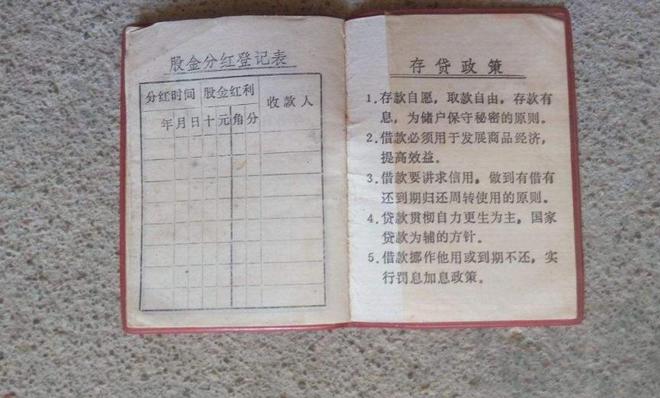 股金分红登记表
分红时间 股金红利 收款人
年月日十元角分
存贷政策
1.存款自愿，取款自由，存款有
息，为储户保守秘密的原则。
2.借款必须用于发展商品经济，
提高效益。
3.借款要讲求信用，做到有借有
还到期归还周转使用的原则。
4.贷款贯彻自力更生为主，国家
贷款为辅的方针。
5.借款挪作他用或到期不还，实
行罚息加息政策。